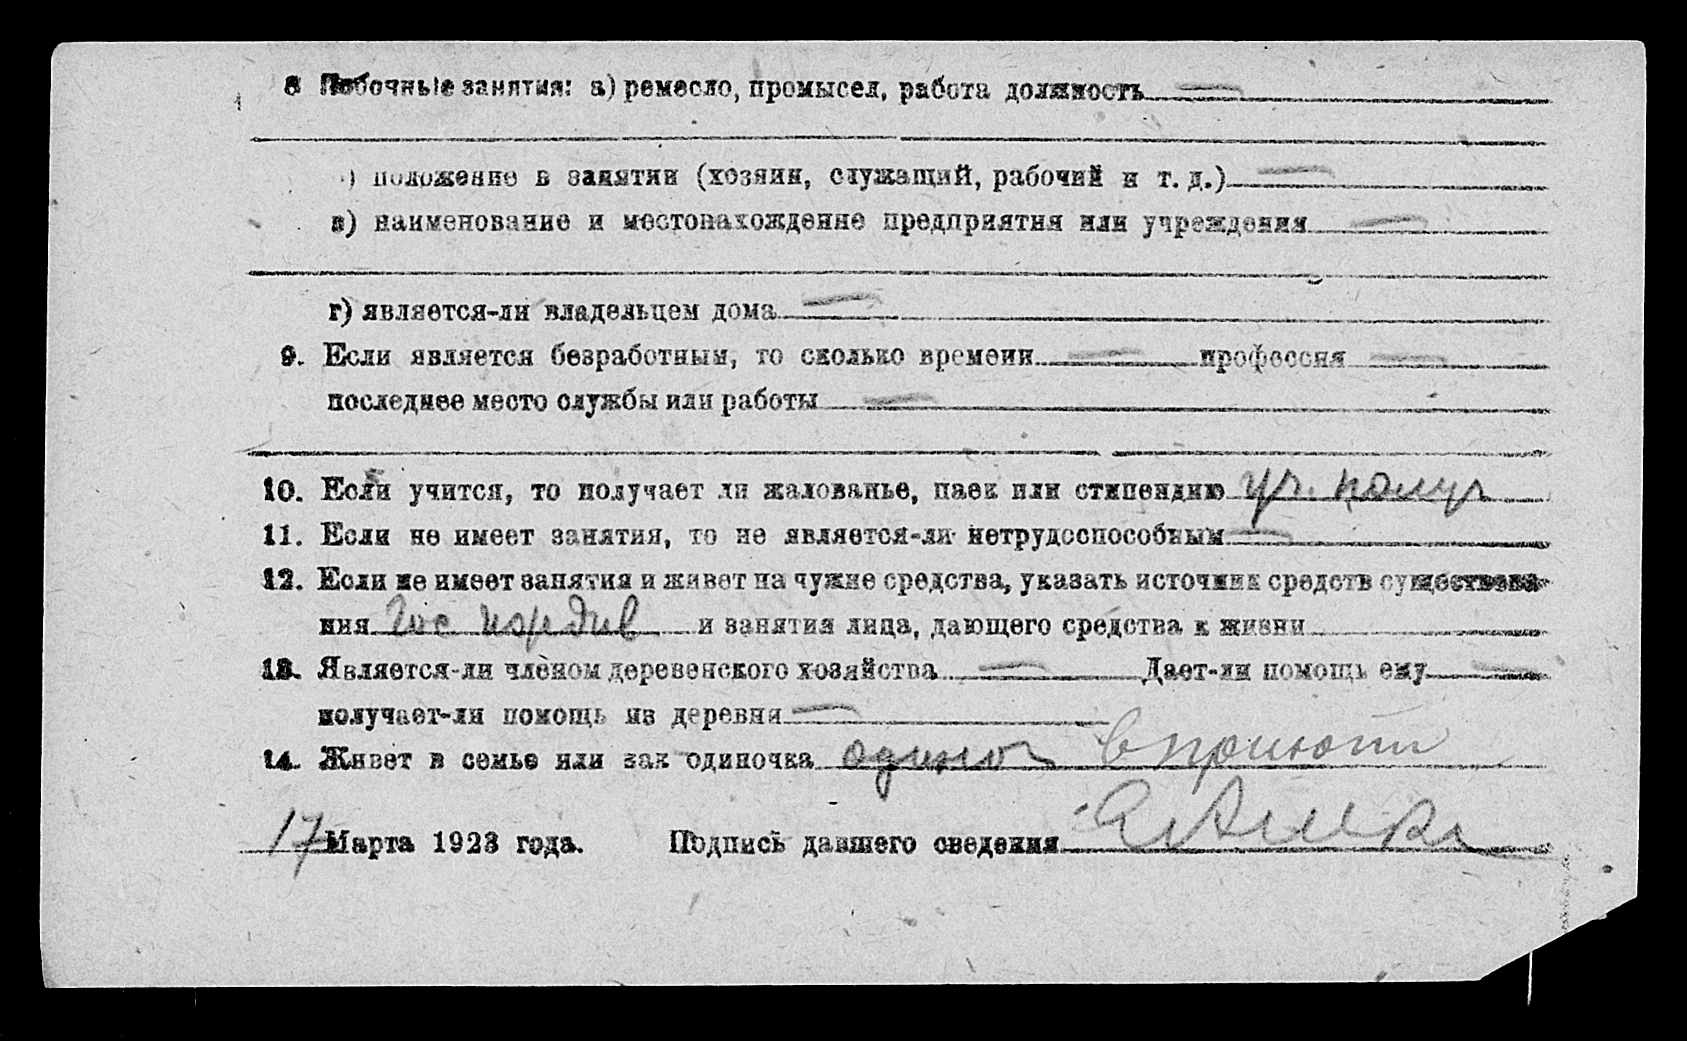 8 Побочные занятия: а) ремесло, промысел, работа должность —
) положение в занятии (хозяин, служащий, рабочий и т. д.) —
в) наименование и местонахождение предприятия или учреждения —
г) является-ли владельцем дома —
9. Если является безработным, то сколько времени — профессия —
последнее место службы или работы —
10. Если учится, то получает ли жалованье, паек или стипендию уч. получ
11. Если не имеет занятия, то не является-ли нетрудоспособным —
12. Если не имеет занятия и живет на чужие средства, указать источник средств существова-
ния Гос иждив и занятия лица, дающего средства к жизни
13. Является-ли членом деревенского хозяйства — Дает-ли помощь ему —
получает-ли помощь из деревни —
14. Живет в семье или как одиночка одиноч в приюти
17 Марта 1923 года. Подпись давшего сведения